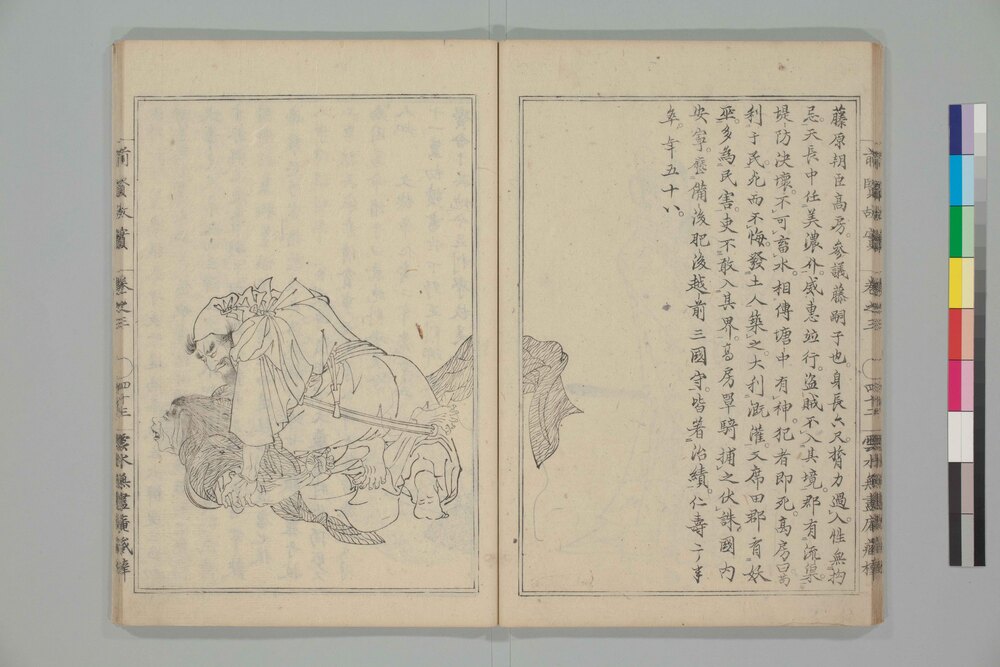 藤原朝臣高房。參議藤嗣子也。身長六尺。膂力過人。性無拘
忌。天長中任美濃介。威惠竝行。盗賊不入其境。郡有流渠。
堤防決壞。不可畜水。相傳塘中有神。犯者即死。高房曰。苟
利于民。死而不悔。發土人築之。大利漑灌。又席田郡有妖
巫。多為民害。吏不敢入其界。高房單騎捕之伏誅。國内
安寧。歴備後肥後越前三國守。皆著治績。仁壽二年
卒。年五十八。
前賢故實
巻之三
四十二
雲水無盡庵藏梓
前賢故實
巻之三
四十三
雲水無盡庵藏梓